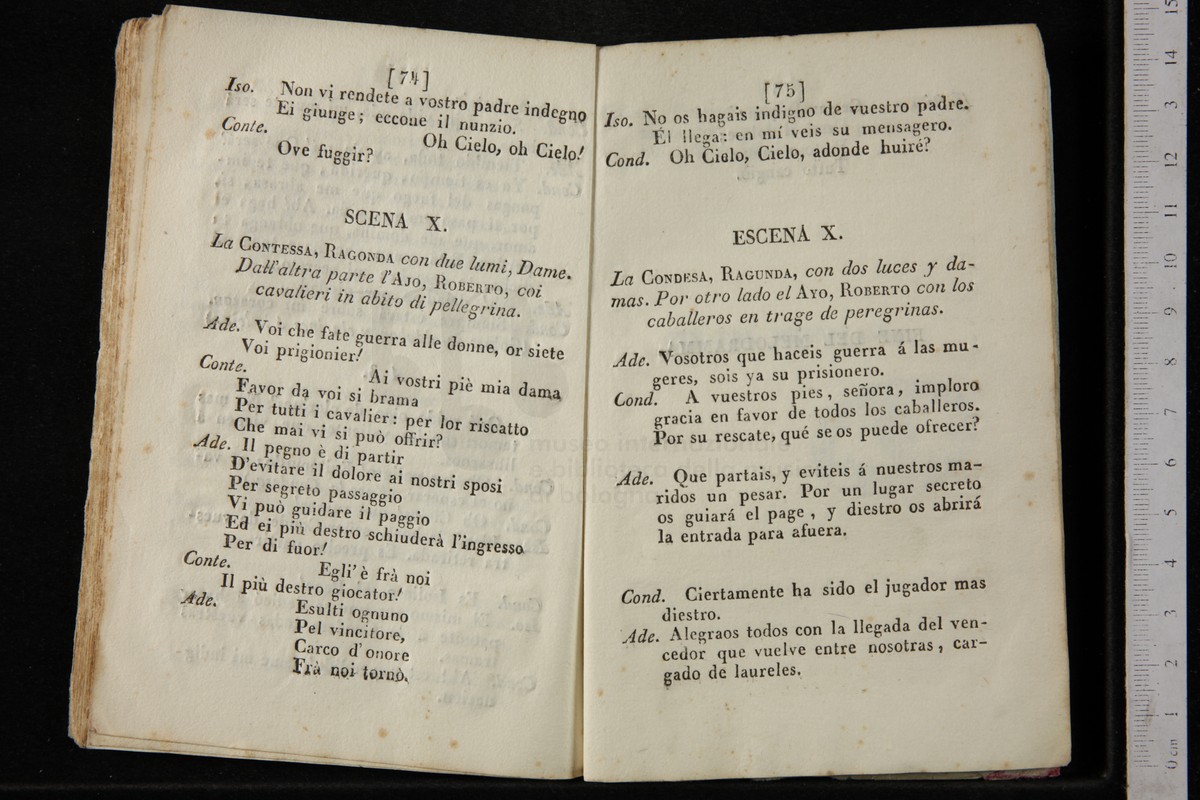 [74]
Iso. Non vi rendete a vostro padre indegno
Ei giunge; eccone il nunzio.
Conte. Oh Cielo, oh Cielo!
Ove fuggir?
SCENA X.
La CONTESSA, RAGONDA con due lumi, Dame.
Dall'altra parte l'AJO, ROBERTO, coi
cavalieri in abito di pellegrina.
Ade. Voi che fate guerra alle donne, or siete
Voi prigionier!
Conte. Ai vostri piè mia dama
Favor da voi si brama
Per tutti i cavalier: per lor riscatto
Che mai vi si può offrir?
Ade. Il pegno è di partir
D'evitare il dolore ai nostri sposi
Per segreto passaggio
Vi può guidare il paggio
Ed ei più destro schiuderà l'ingresso
Per di fuor!
Conte. Egli' è frà noi
Il più destro giocator!
Ade. Esulti ognuno
Pel vincitore,
Carco d'onore
Frà noi tornò.
[75]
Iso. No os hagais indigno de vuestro padre.
Él llega: en mí veis su mensagero.
Cond. Oh Cielo, Cielo, adonde huiré?
ESCENA X.
La CONDESA, RAGUNDA, con dos luces y da-
mas. Por otro lado el AYO, ROBERTO con los
caballeros en trage de peregrinas.
Ade. Vosotros que haceis guerra á las mu-
geres, sois ya su prisionero.
Cond. A vuestros pies, señora, imploro
gracia en favor de todos los caballeros.
Por su rescate, qué se os puede ofrecer?
Ade. Que partais, y eviteis á nuestros ma-
ridos un pesar. Por un lugar secreto
os guiará el page, y diestro os abrirá
la entrada para afuera.
Cond. Ciertamente ha sido el jugador mas
diestro.
Ade. Alegraos todos con la llegada del ven-
cedor que vuelve entre nosotras, car-
gado de laureles.
museo internazionale
e biblioteca della
bologna
0 cm 1 2 3 4 5 6 7 8 9 10 11 12 3 14 15